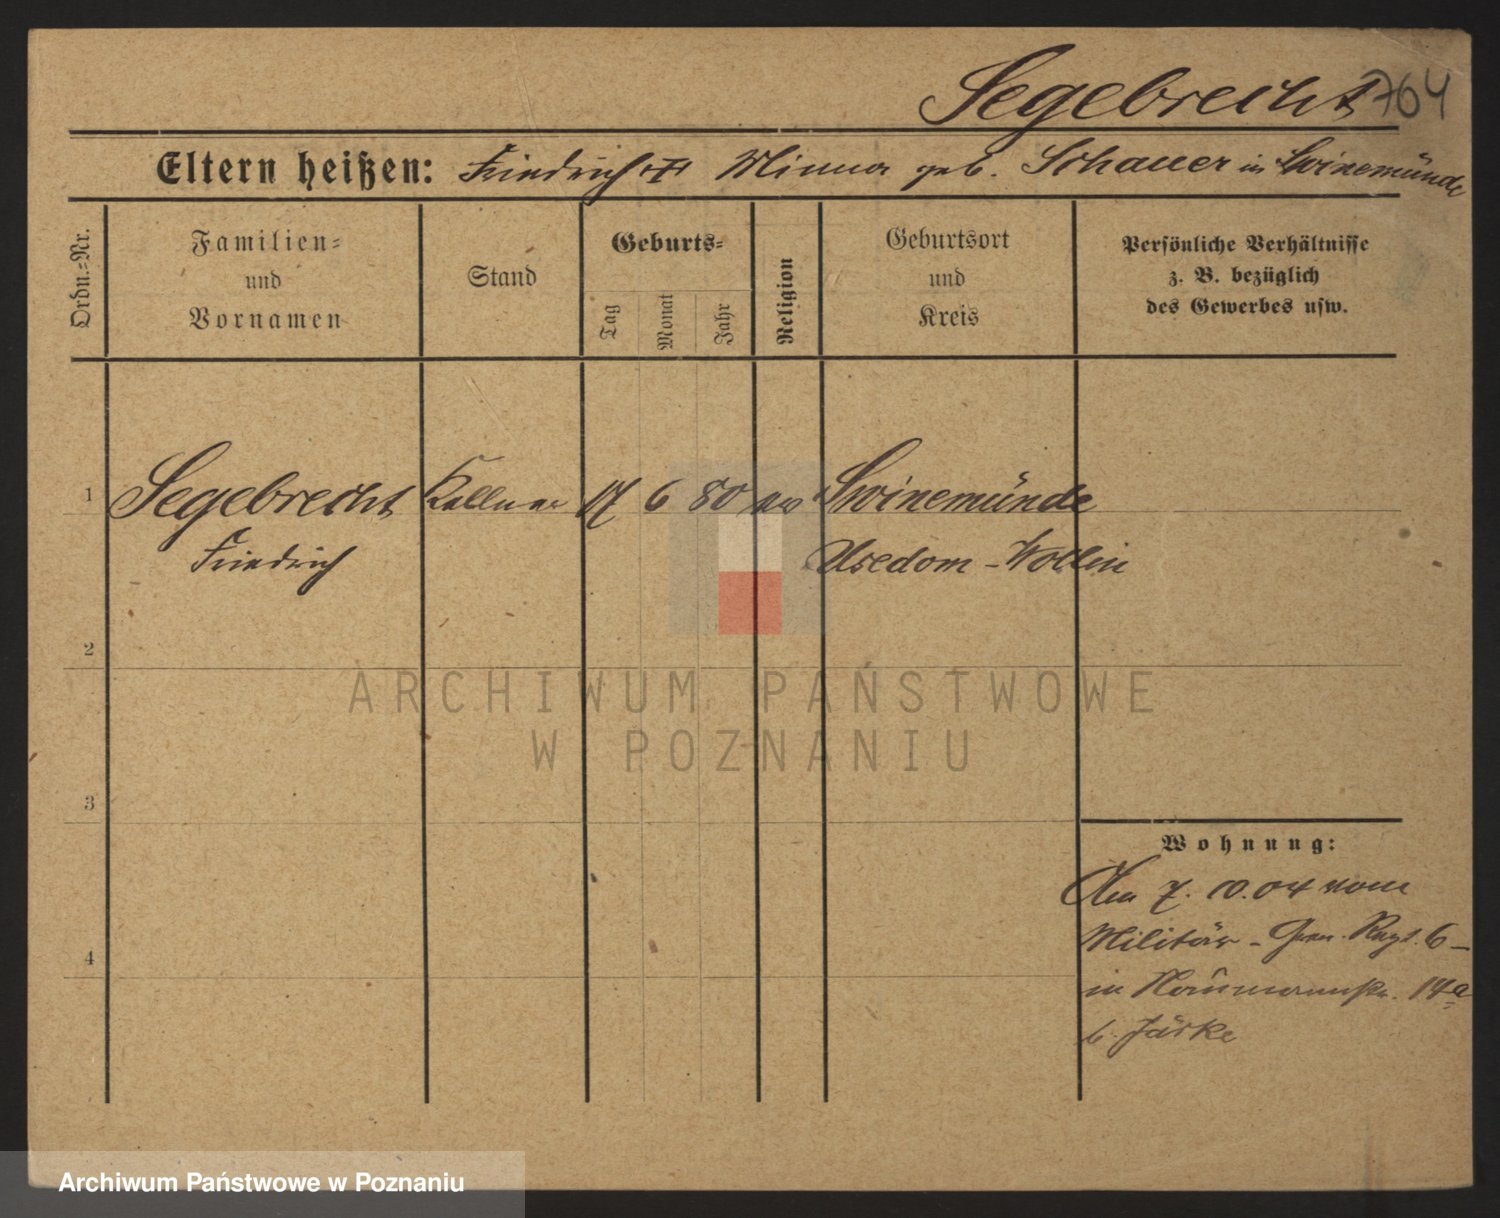 Segebrecht 764
Eltern heißen: Friedrich † Minna geb. Schauer in Swinemünde
Ordn.=Nr.
Familien=
und
Vornamen
Stand
Geburts=
Tag
Monat
Jahr
Religion
Geburtsort
und
Kreis
Persönliche Verhältnisse
z. B. bezüglich
des Gewerbes usw.
1 Segebrecht Kellner 17 6 80 ev Swinemünde
Friedrich Usedom-Wollin
2
3
4
Wohnung:
Am 7. 10. 04 vom
Militär - Gren. Regt. 6 -
in Naumannstr. 14a
b. Järke
ARCHIWUM PAŃSTWOWE
W POZNANIU
Archiwum Państwowe w Poznaniu